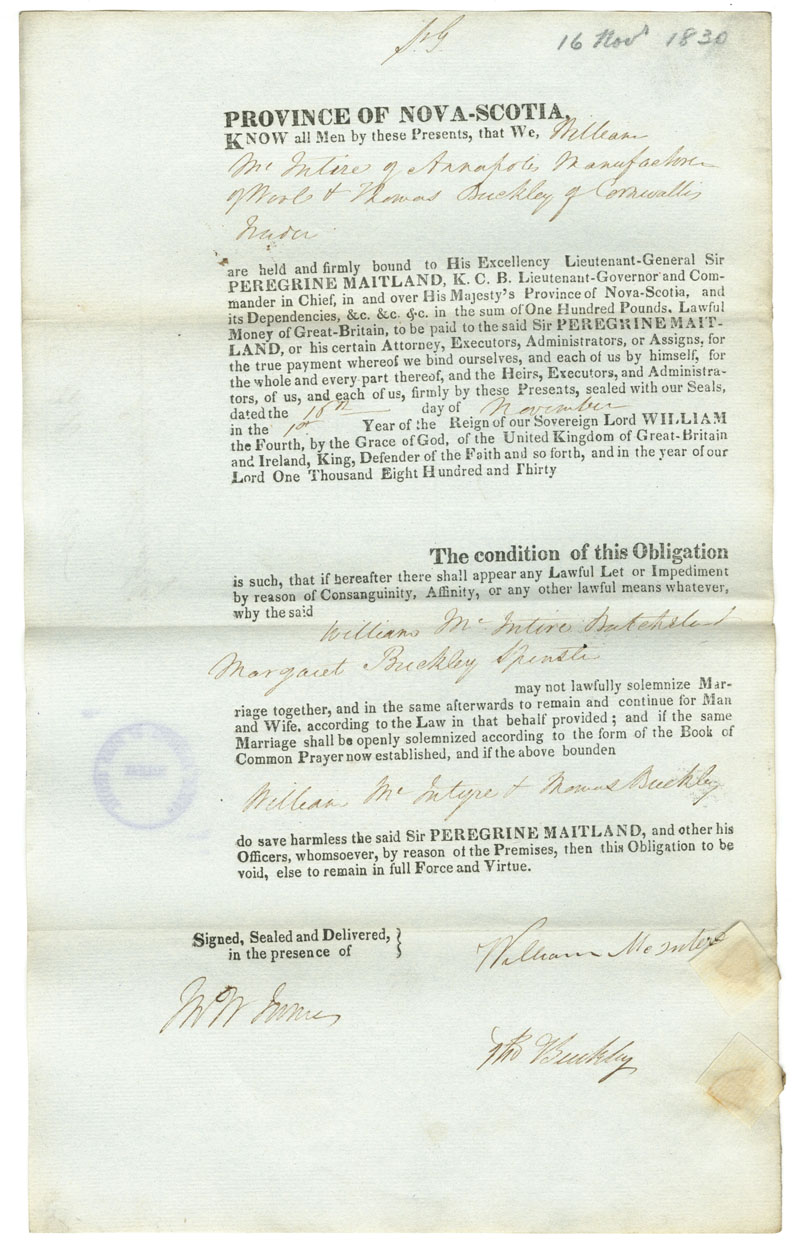 16 Novr 1830
PROVINCE OF NOVA-SCOTIA,
KNOW all Men by these Presents, that We, William
Mc Intire of Annapolis Manufacturer
of Wools & Thomas Buckley of Cornwallis
Trader
are held and firmly bound to His Excellency Lieutenant-General Sir
PEREGRINE MAITLAND, K. C. B. Lieutenant-Governor and Com-
mander in Chief, in and over His Majesty's Province of Nova-Scotia, and
its Dependencies, &c. &c. &c. in the sum of One Hundred Pounds. Lawful
Money of Great-Britain, to be paid to the said Sir PEREGRINE MAIT-
LAND, or his certain Attorney, Executors, Administrators, or Assigns, for
the true payment whereof we bind ourselves, and each of us by himself, for
the whole and every part thereof, and the Heirs, Executors, and Administra-
tors, of us, and each of us, firmly by these Presents, sealed with our Seals,
dated the 16th day of November
in the 1st Year of the Reign of our Sovereign Lord WILLIAM
the Fourth, by the Grace of God, of the United Kingdom of Great-Britain
and Ireland, King, Defender of the Faith and so forth, and in the year of our
Lord One Thousand Eight Hundred and Thirty
The condition of this Obligation
is such, that if hereafter there shall appear any Lawful Let or Impediment
by reason of Consanguinity, Affinity, or any other lawful means whatever,
why the said
William Mc Intire
Margaret Buckley Spinster
may not lawfully solemnize Mar-
riage together, and in the same afterwards to remain and continue for Man
and Wife. according to the Law in that behalf provided ; and if the same
Marriage shall be openly solemnized according to the form of the Book of
Common Prayer now established, and if the above bounden
William Mc Intyre & Thomas Buckley
do save harmless the said Sir PEREGRINE MAITLAND, and other his
Officers, whomsoever, by reason of the Premises, then this Obligation to be
void, else to remain in full Force and Virtue.
Signed, Sealed and Delivered,
in the presence of
William McIntyre
Tho Buckley